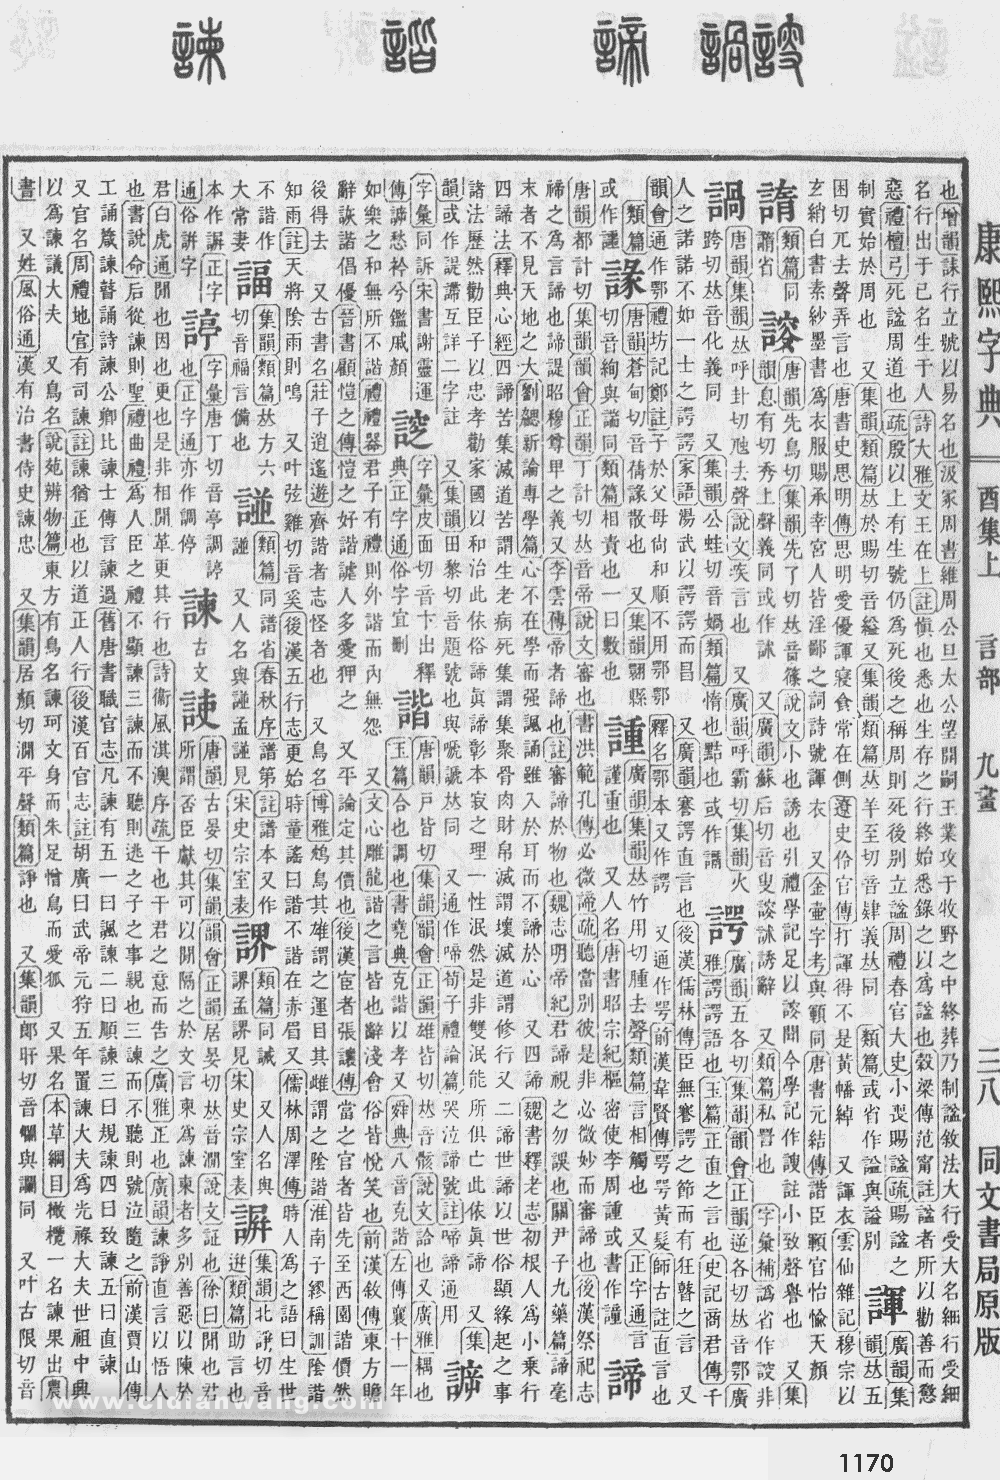 康熙字典 酉集上 言部 九畫 三八 同文書局原版
也增韻誄行立號以易名也汲冢周書維周公旦太公望開嗣王業攻于牧野之中終葬乃制諡敘法大行受大名細行受細
名行出于己名生于人詩大雅文王在上註愼也悉也生存之行終始悉錄之以爲諡也穀梁傳范甯註諡者所以勸善而懲
惡禮檀弓死諡周道也疏殷以上有生號仍爲死後之稱周則死後別立諡周禮春官大史小喪賜諡疏賜諡之
制實始於周也 又集韻類篇𠀤於賜切音縊又集韻類篇𠀤羊至切音肄義𠀤同 類篇或省作謚與謚別 諢 廣韻集韻𠀤五
困切兀去聲弄言也唐書史思明傳思明愛優諢寢食常在側遼史伶官傳打諢得不是黃幡綽 又諢衣雲仙雜記穆宗以
玄綃白書素紗墨書爲衣服賜承幸宮人皆淫鄙之詞詩號諢衣 又金壷字考與顐同唐書元結傳諧臣顐官怡愉天顏
類篇同省 謏 唐韻先鳥切集韻先了切𠀤音篠說文小也誘也引禮學記足以謏聞今學記作謏註小致聲譽也 又集
韻息有切秀上聲義同或作訹 又廣韻蘇后切音叟謏訹誘辭 又類篇私詈也 字彙補譌省作誜非
諣 唐韻集韻𠀤呼卦切 去聲說文疾言也 又廣韻呼霸切集韻火跨切𠀤音化義同 又集韻公蛙切音媧類篇惰也黠也 或作譪
諤 廣韻五各切集韻韻會正韻逆各切𠀤音鄂廣雅諤諤語也玉篇正直之言也史記商君傳千
人之諾諾不如一士之諤諤家語湯武以諤諤而昌 又廣韻謇諤直言也後漢儒林傳臣無謇諤之節而有狂瞽之言 又
韻會通作鄂禮坊記鄭註子於父母尙和順不用鄂鄂釋名鄂本又作諤 又通作咢前漢韋賢傳咢咢黃髮師古註直言也
類篇或作讍 諑 唐韻蒼甸切音倩諑散也 又集韻翾縣切音絢與讂同類篇相責也一曰數也
諥 廣韻集韻𠀤竹用切腫去聲類篇言相觸也 又正字通言謹重也 又人名唐書昭宗紀樞密使李周諥或書作諥 諦
唐韻都計切集韻韻會正韻丁計切𠀤音帝說文審也書洪範孔傳必微諦疏聽當別彼是非必微妙而審諦也後漢祭祀志
禘之爲言諦也諦諟昭穆尊卑之義又李雲傳帝者諦也註審諦於物也魏志明帝紀君諦視之勿誤也關尹子九藥篇諦毫
末者不見天地之大劉勰新論專學篇心不在學而强諷誦雖入於耳而不諦於心 又四諦魏書釋老志初根人爲小乗行
四諦法釋典心經四諦苦集滅道苦謂生老病死集謂集聚骨肉財帛滅謂壞滅道謂修行又二諦世諦以世俗顯緣起之事
諸法歷然勸臣子以忠孝勸家國以和治此依俗諦眞諦彰本寂之理一性泯然是非雙泯能所俱亡此依眞諦 又集
韻或作諟諦互詳二字註 又集韻田黎切音題號也與嗁謕𠀤同 又通作啼荀子禮論篇哭泣諦號註啼諦通用 諦
字彙同訴宋書謝靈運傳 愁衿兮鑑戚顏 字彙皮面切音卞出釋典正字通俗字宜刪
諧 唐韻戸皆切集韻韻會正韻雄皆切𠀤音骸說文詥也又廣雅耦也玉篇合也調也書堯典克諧以孝又舜典八音克諧左傳襄十一年
如樂之和無所不諧禮禮器君子有禮則外諧而內無怨 又文心雕龍諧之言皆也辭淺會俗皆悅笑也前漢敘傳東方贍
辭詼諧倡優晉書顧愷之傳愷之好諧謔人多愛狎之 又平論定其價也後漢宦者張讓傳當之官者皆先至西園諧價然
後得去 又古書名莊子逍遙遊齊諧者志怪者也 又鳥名博雅鴆鳥其雄謂之運目其雌謂之陰諧淮南子繆稱訓陰諧
知雨雨註天將陰雨則鳴 又叶弦雞切音奚後漢五行志更始時童謠曰諧不諧在赤眉又儒林周澤傳時人爲之語曰生世
不諧作大常妻 諨 集韻類篇𠀤方六切音福言備也 諩 類篇同譜省春秋序譜第註譜本又作諩 又人名與諩孟謹見宋史宗室表 𧫠 類篇同誡 又人名與 孟 見宋史宗室表 䛣 集韻北諍切音迸類篇助言也
本作 正字通俗 字 諪 字彙唐丁切音亭調諪也正字通亦作調停
諫 古文 諌 唐韻古晏切集韻韻會正韻居晏切𠀤音澗說文証也徐曰閒也君
所謂否臣獻其可以閒隔之於文言柬爲諫柬者多別善惡以陳於
君白虎通閒也因也更也是非相閒革更其行也詩衞風淇澳序疏干也干君之意而告之廣雅正也廣韻諫諍直言以悟人
也書說命后從諫則聖禮曲禮爲人臣之禮不顯諫三諫而不聽則逃之子之事親也三諫而不聽則號泣隨之前漢賈山傳
工誦箴諫瞽誦詩諫公卿比諫士傳言諫過舊唐書職官志凡諫有五一曰諷諫二曰順諫三曰規諫四曰致諫五曰直諫
又官名周禮地官有司諫註諫猶正也以道正人行後漢百官志註胡廣曰武帝元狩五年置諫大夫爲光祿大夫世祖中興
以爲諫議大夫 又鳥名說苑辨物篇東方有鳥名諫珂文身而朱足憎鳥而愛狐 又果名本草綱目橄欖一名諫果出農
書 又姓風俗通漢有治書侍史諫忠 又集韻居顏切澗平聲類篇諍也 又集韻郎旰切音爛與讕同 又叶古限切音
www.cidianwang.com
1170